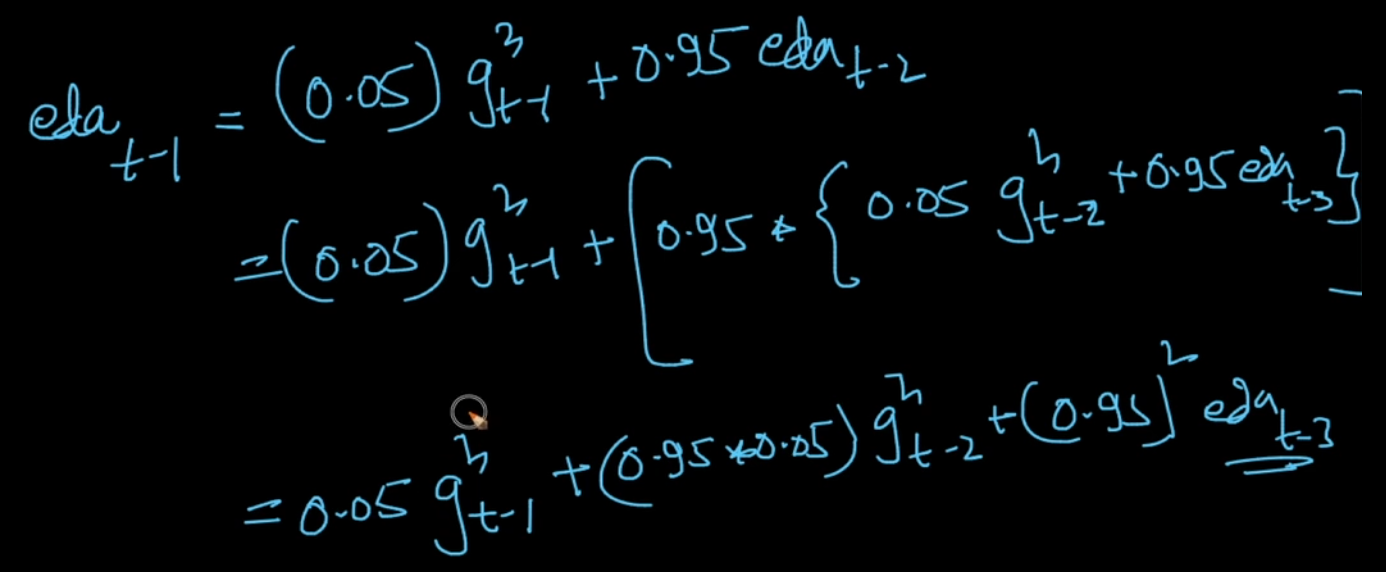 eda_{t-1} = (0.05) g²_{t-1} + 0.95 eda_{t-2}
= (0.05) g²_{t-1} + [0.95 * {0.05 g²_{t-2} + 0.95 eda_{t-3}}]
= 0.05 g²_{t-1} + (0.95 * 0.05) g²_{t-2} + (0.95)² eda_{t-3}